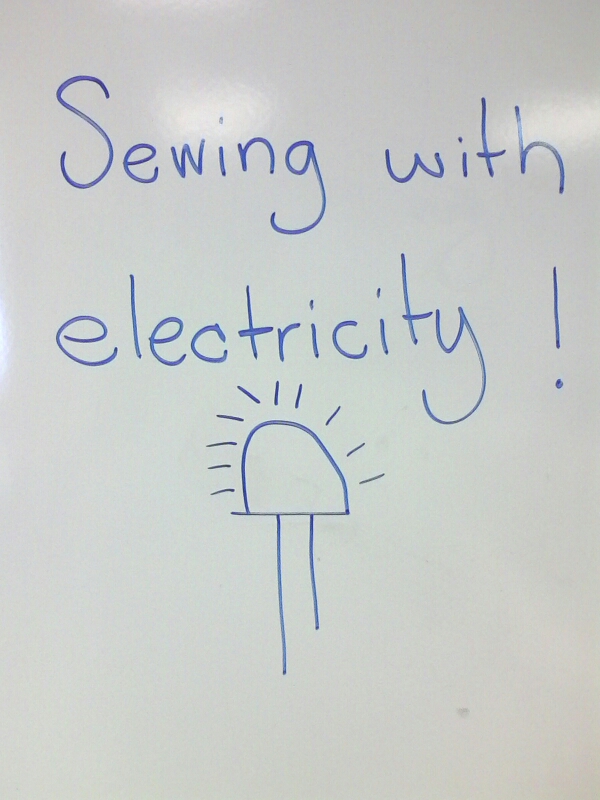 Sewing with
electricity!